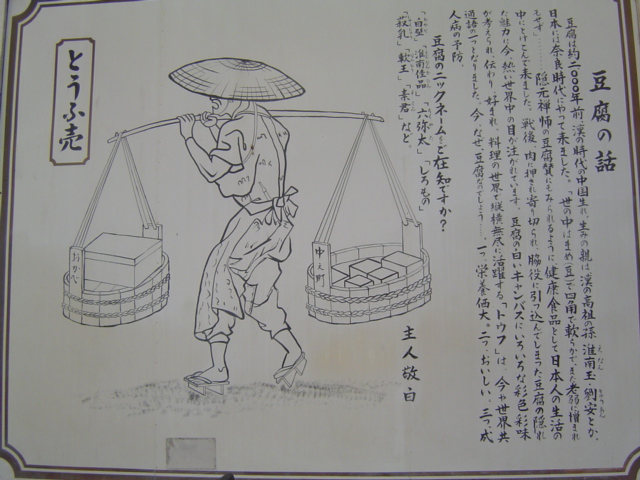 豆腐の話
豆腐は約二〇〇〇年前、漢の時代の中国生れ、生みの親は、漢の高祖の孫淮南王劉安とか、
日本には奈良時代にやって来ました。「世の中はまめで四角で軟らかで、また老弱に憎まれ
もせず」……隠元禅師の豆腐賛にもみられるように健康食品として日本人の生活の
中にとけこんで来ました。戦後、肉に押され寄り切られ、脇役に引っ込んでしまった豆腐の隠れ
た魅力に今、熱い世界中の目が注がれています。豆腐の白いキャンバスにいろいろな彩色彩味
が考えられ、伝わり、好まれ、料理の世界で縦横無尽に活躍する「トウフ」は、今や世界共
通語の一つとなりました。今、なぜ、豆腐なのでしょう……一つ、栄養価大。二つ、おいしい、三つ、成
人病の予防
豆腐のニックネームをご在知ですか?
「白壁」「淮南佳品」「六弥太」「しろもの」
「菽乳」「軟玉」「素君」など。
主人敬白
とうふ売
おかべ
中之町
えなん
りゅうあん